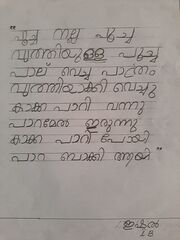 " പൂച്ച നല്ല പൂച്ച
വൃത്തിയുള്ള പൂച്ച
പാല് വെച്ച പാത്രം
വൃത്തിയാക്കി വെച്ചു
കാക്ക പാറി വന്നു
പാറമേൽ ഇരുന്നു
കാക്ക പാറി പോയി
പാറ ബാക്കി ആയി "
ഇഷൽ
1 B